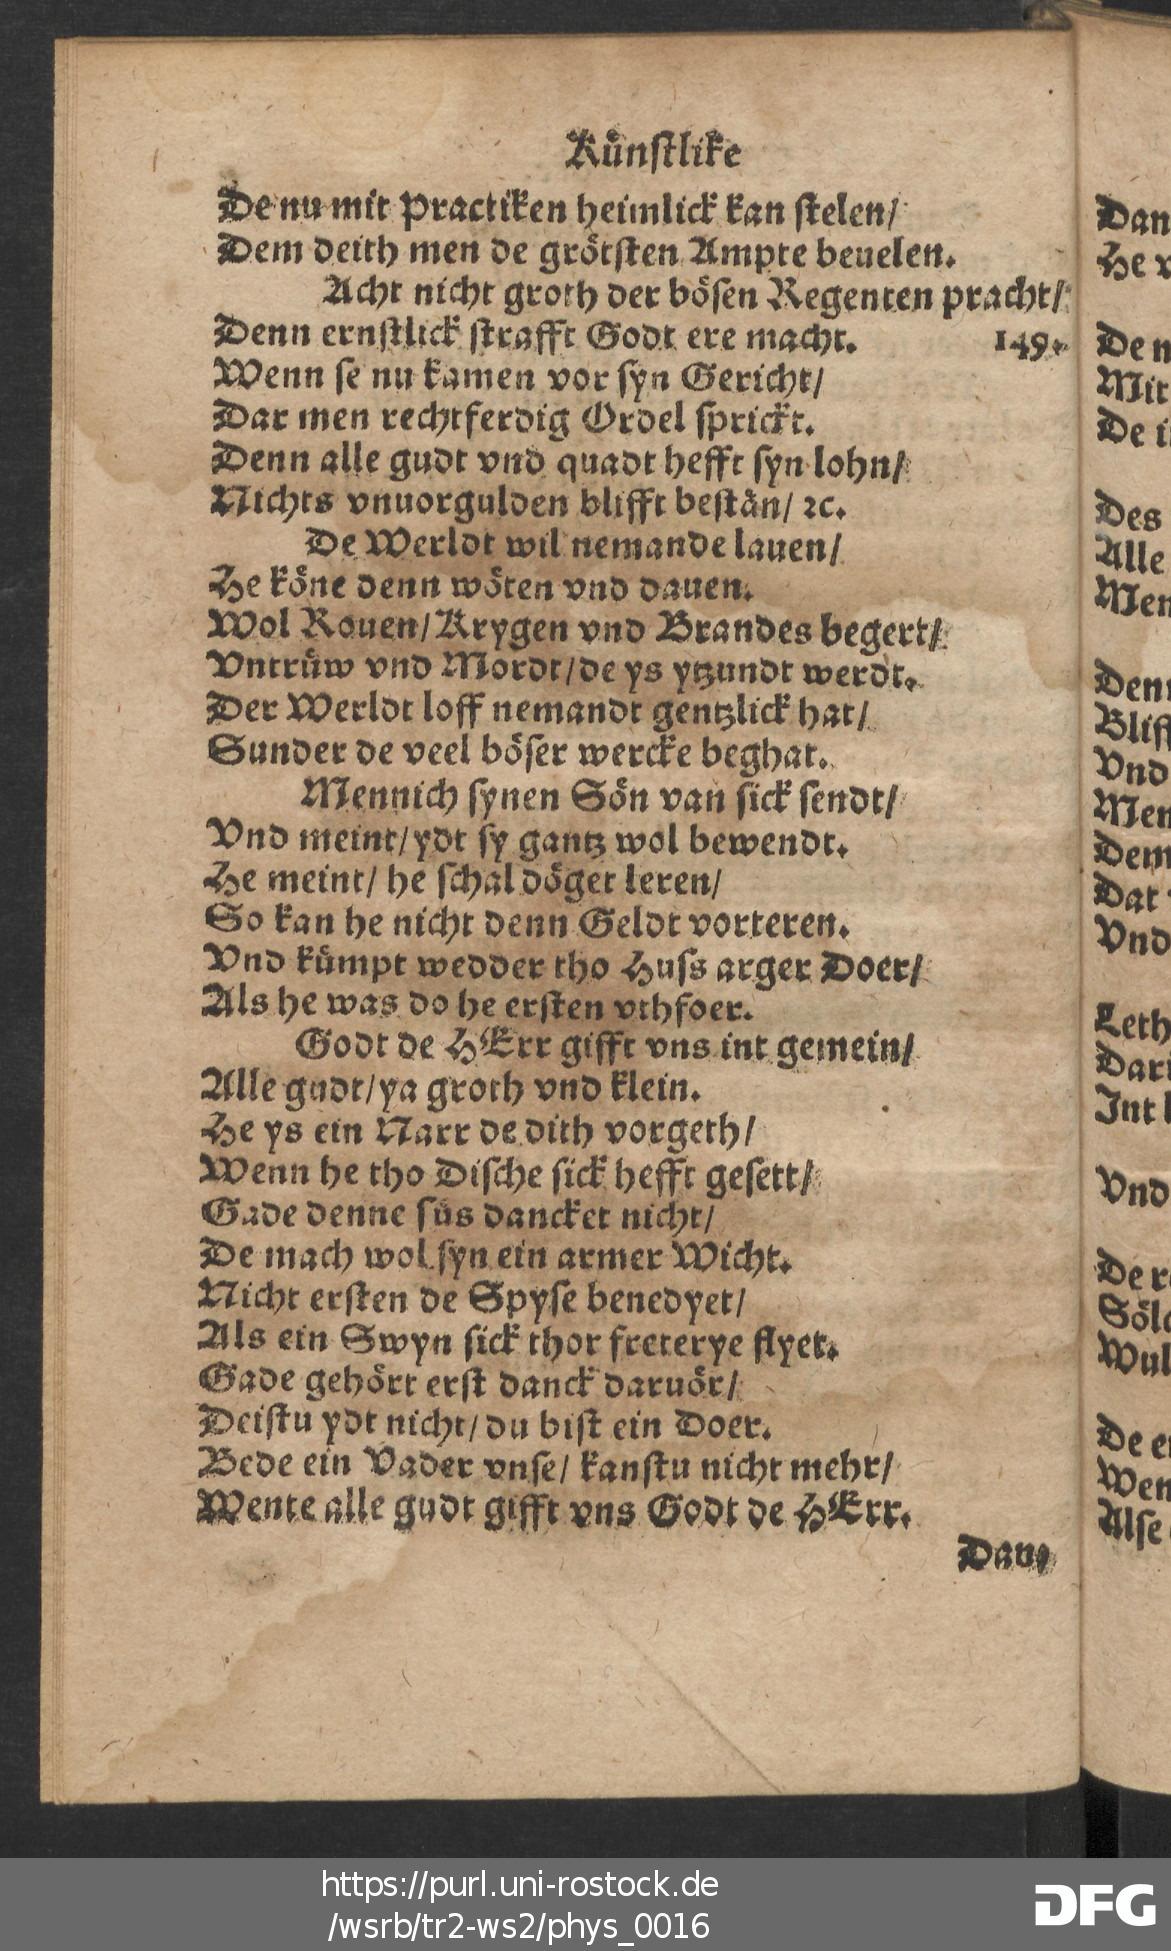 Kůnstlike
De nu mit Practiken heimlick kan stelen/
Dem deith men de grötsten Ampte beuelen.
Acht nicht groth der bösen Regenten pracht/
Denn ernstlick strafft Godt ere macht. 149.
Wenn se nu kamen vor syn Gericht/
Dar men rechtferdig Ordel sprickt.
Denn alle gudt vnd quadt hefft syn lohn/
Nichts vnuorgulden blifft bestån/ ꝛc.
De Werldt wil nemande lauen/
He köne denn wöten vnd dauen.
Wol Rouen/ Krygen vnd Brandes begert/
Vntrůw vnd Mordt/ de ys ytzundt werdt.
Der Werldt loff nemandt gentzlick hat/
Sunder de veel böser wercke beghat.
Mennich synen Sön van sick sendt/
Vnd meint/ ydt sy gantz wol bewendt.
He meint/ he schal döger leren/
So kan he nicht denn Geldt vorteren.
Vnd kůmpt wedder tho Huss arger Doer/
Als he was do he ersten vthfoer.
Godt de HErr gifft vns int gemein/
Alle gudt/ ya groth vnd klein.
He ys ein Narr de dith vorgeth/
Wenn he tho Dische sick hefft gesett/
Gade denne sůs dancket nicht/
De mach wol syn ein armer Wicht.
Nicht ersten de Spyse benedyet/
Als ein Swyn sick thor freterye flyet.
Gade gehört erst danck daruör/
Deistu ydt nicht/ du bist ein Doer.
Bede ein Vader vnse/ kanstu nicht mehr/
Wente alle gudt gifft vns Godt de HErr.
Dan
He
De
Mit
De
Des
Alle
Vnd
Vnd
Int
Vnd
https://purl.uni-rostock.de
/wsrb/tr2-ws2/phys_0016
DFG